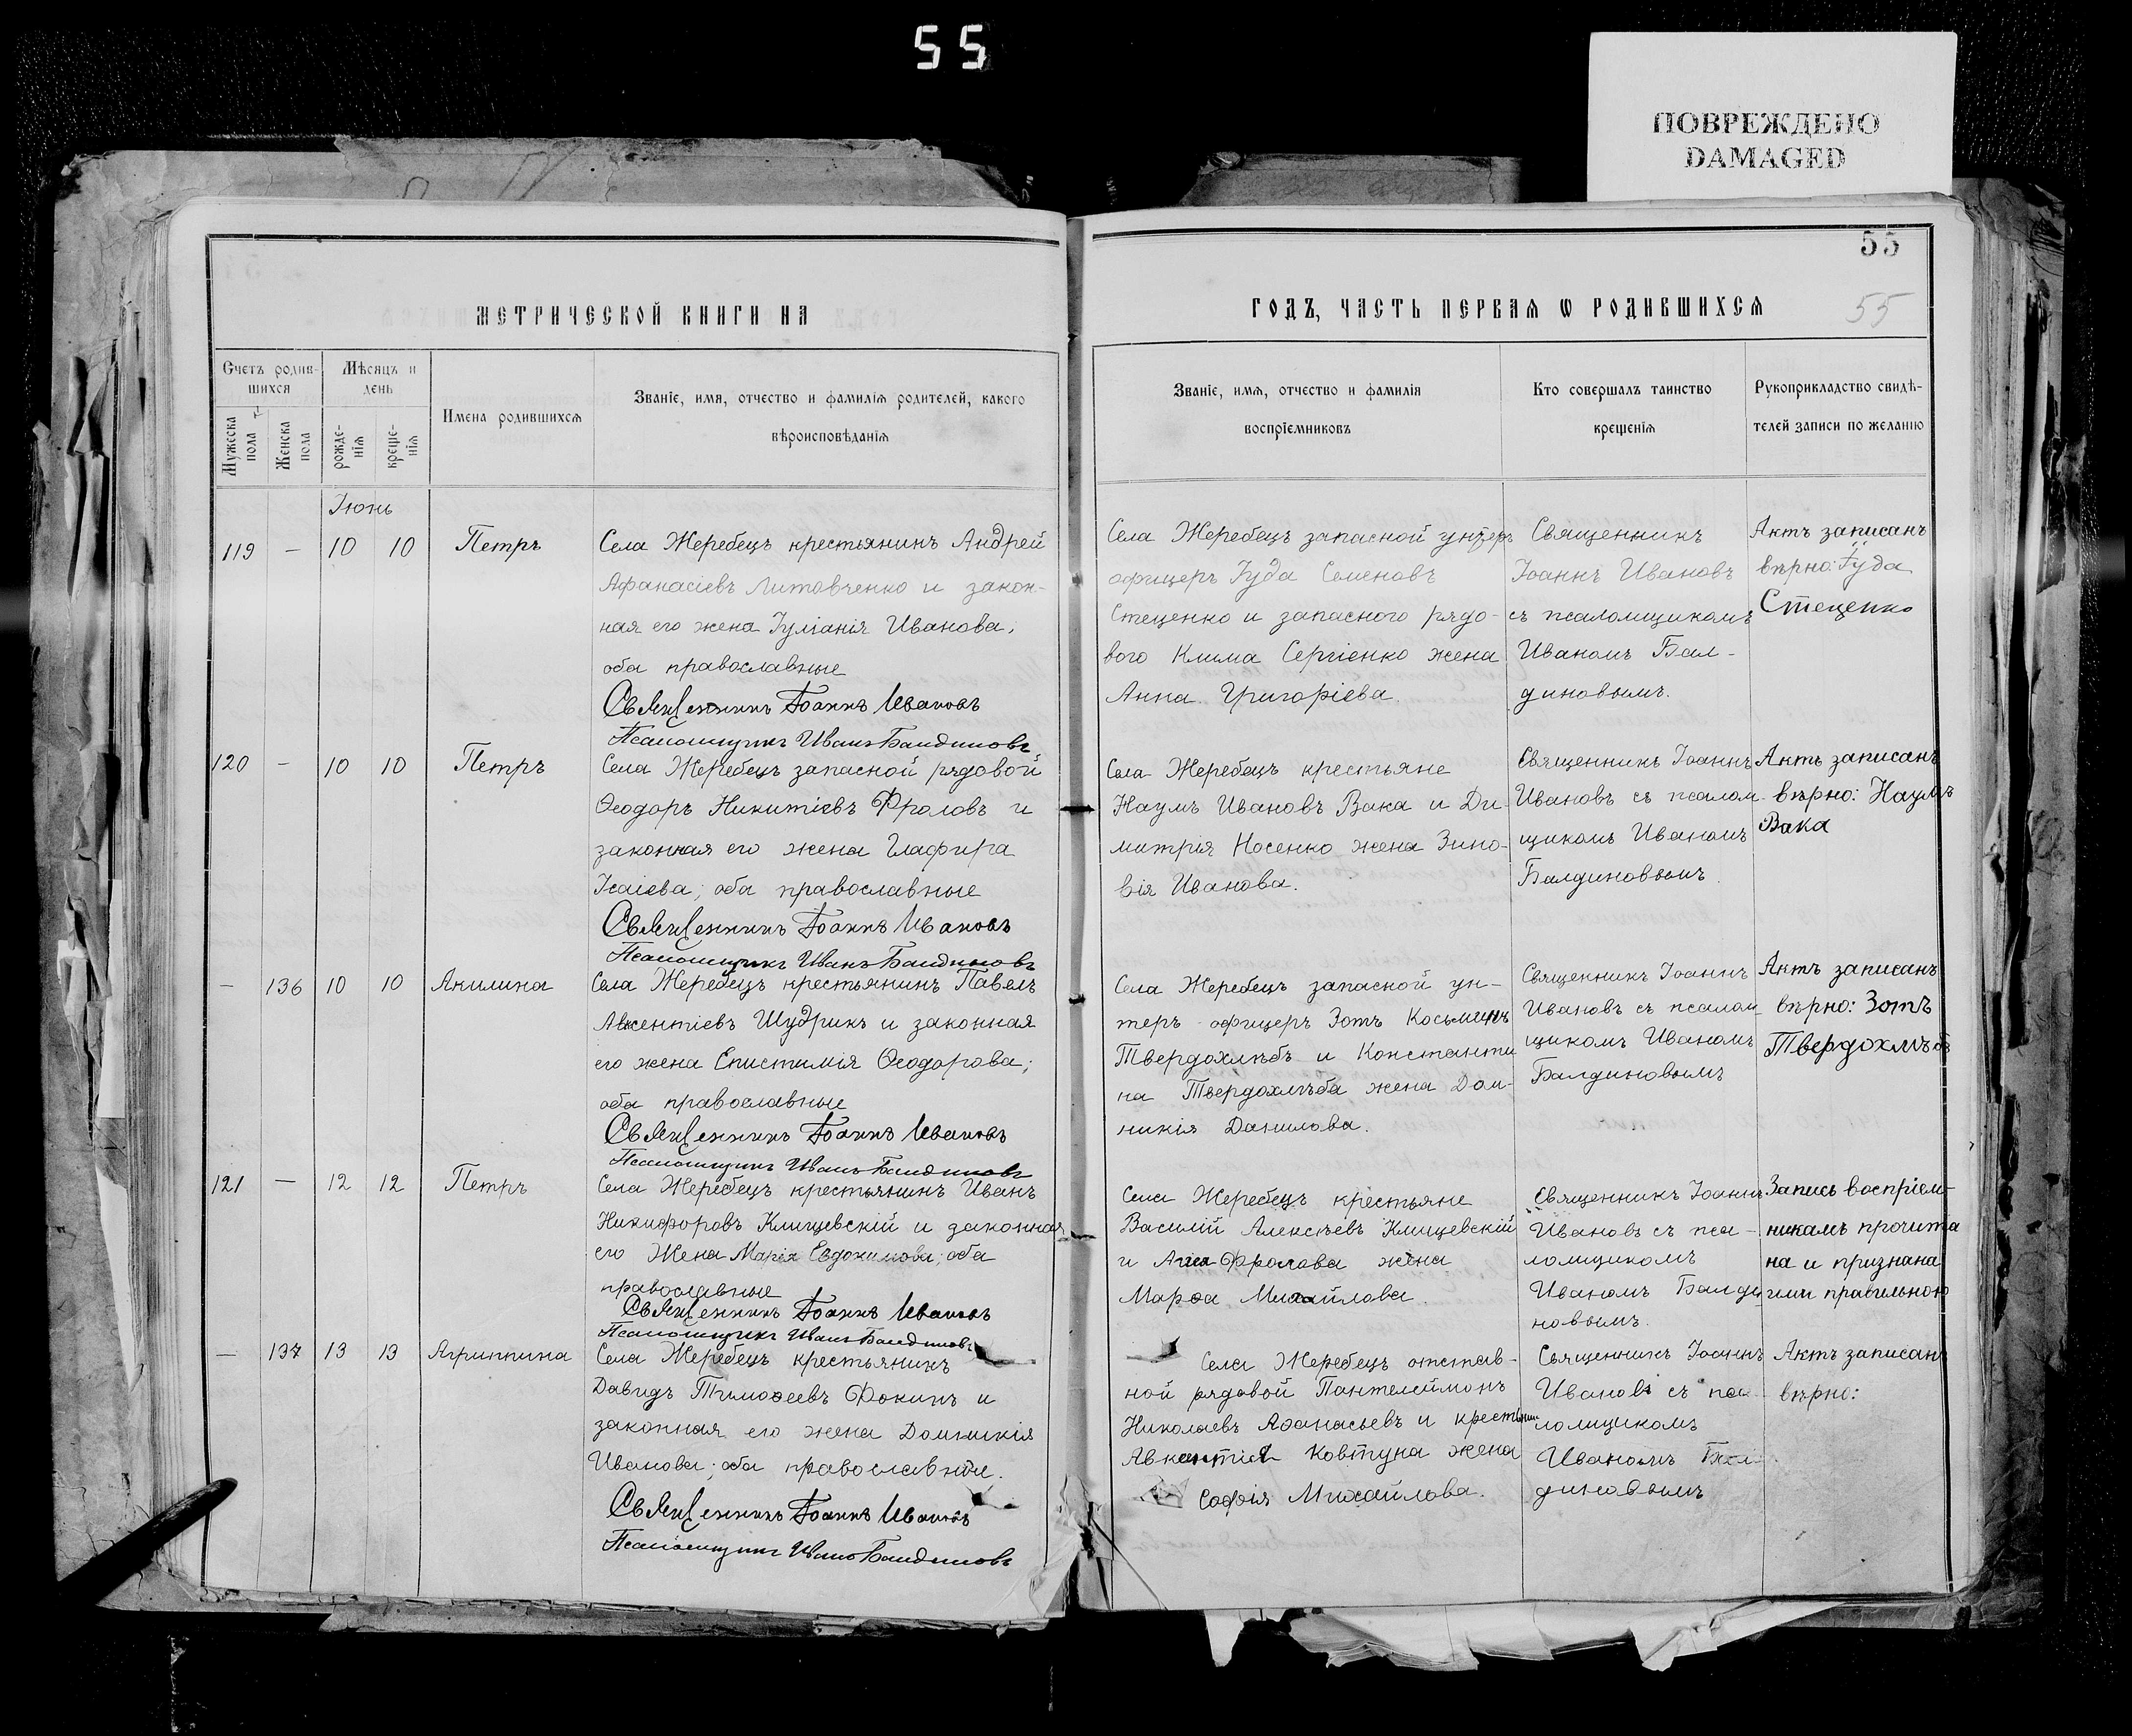 55
ПОВРЕЖДЕНО
DAMAGED
55
55
МЕТРИЧЕСКОЙ КНИГИ НА
Счетъ родив-
шихся
Мѣсяцъ и
день
Мужеска
пола
Женска
пола
рожде-
нія
креще-
нія
Имена родившихся
Званіе, имя, отчество и фамилія родителей, какого
вѣроисповѣданія
Іюнь
119 — 10 10 Петръ
Села Жеребецъ крестьянинъ Андрей
Афанасіевъ Литовченко и закон-
ная его жена Іуліанія Иванова,
оба православные
Священникъ Іоаннъ Ивановъ
Псаломщикъ Иванъ Балдиновъ
120 — 10 10 Петръ
Села Жеребецъ запасной рядовой
Ѳеодоръ Никитіевъ Фроловъ и
законная его жена Глафира
Исаіева; оба православные
Священникъ Іоаннъ Ивановъ
Псаломщикъ Иванъ Балдиновъ
— 136 10 10 Акилина
Села Жеребецъ крестьянинъ Павелъ
Авкентіевъ Шудрикъ и законная
его жена Епистимія Ѳеодорова;
оба православные
Священникъ Іоаннъ Ивановъ
Псаломщикъ Иванъ Балдиновъ
121 — 12 12 Петръ
Села Жеребецъ крестьянинъ Иванъ
Никифоровъ Клищевскій и законная
его жена Марія Евдокимова; оба
православные
Священникъ Іоаннъ Ивановъ
Псаломщикъ Иванъ Балдиновъ
— 137 13 13 Агриппина
Села Жеребецъ крестьянинъ
Давидъ Тимоѳеевъ Фокинъ и
законная его жена Домникія
Иванова; оба православные.
Священникъ Іоаннъ Ивановъ
Псаломщикъ Иванъ Балдиновъ
ГОДЪ, ЧАСТЬ ПЕРВАЯ Ѡ РОДИВШИХСЯ
Званіе, имя, отчество и фамилія
воспріемниковъ
Кто совершалъ таинство
крещенія
Рукоприкладство свидѣ-
телей записи по желанію
Села Жеребецъ запасной унтеръ
офицеръ Іуда Семеновъ
Стеценко и запасного рядо-
вого Клима Сергіенко жена
Анна Григоріева.
Священникъ
Іоаннъ Ивановъ
съ псаломщикомъ
Иваномъ Бал-
диновымъ.
Актъ записанъ
вѣрно: Іуда
Стеценко
Села Жеребецъ крестьяне
Наумъ Ивановъ Вака и Ди-
митрія Носенко жена Зино-
вія Иванова.
Священникъ Іоаннъ
Ивановъ съ псалом
щикомъ Иваномъ
Балдиновымъ
Актъ записанъ
вѣрно: Наумъ
Вака
Села Жеребецъ запасной ун-
теръ офицеръ Зотъ Косьминъ
Твердохлѣбъ и Константи
на Твердохлѣба жена Дом-
никія Данилова.
Священникъ Іоаннъ
Ивановъ съ псалом
щикомъ Иваномъ
Балдиновымъ
Актъ записанъ
вѣрно: Зотъ
Твердохлѣбъ
Села Жеребецъ крестьяне
Василій Алексѣевъ Клищевскій
и Фролова жена
Марѳа Михайлова.
Священникъ Іоаннъ
Ивановъ съ пса-
ломщикомъ
Иваномъ Балди
новымъ.
Запись воспріем-
никамъ прочита
на и признана
ими правильною
Села Жеребецъ отстав-
ной рядовой Пантелеймонъ
Николаевъ Аѳанасьевъ и крестьянина
Авкентія Ковтуна жена
Софія Михайлова.
Священникъ Іоаннъ
Ивановъ съ пса-
ломщикомъ
Иваномъ Бал
диновымъ
Актъ записанъ
вѣрно: